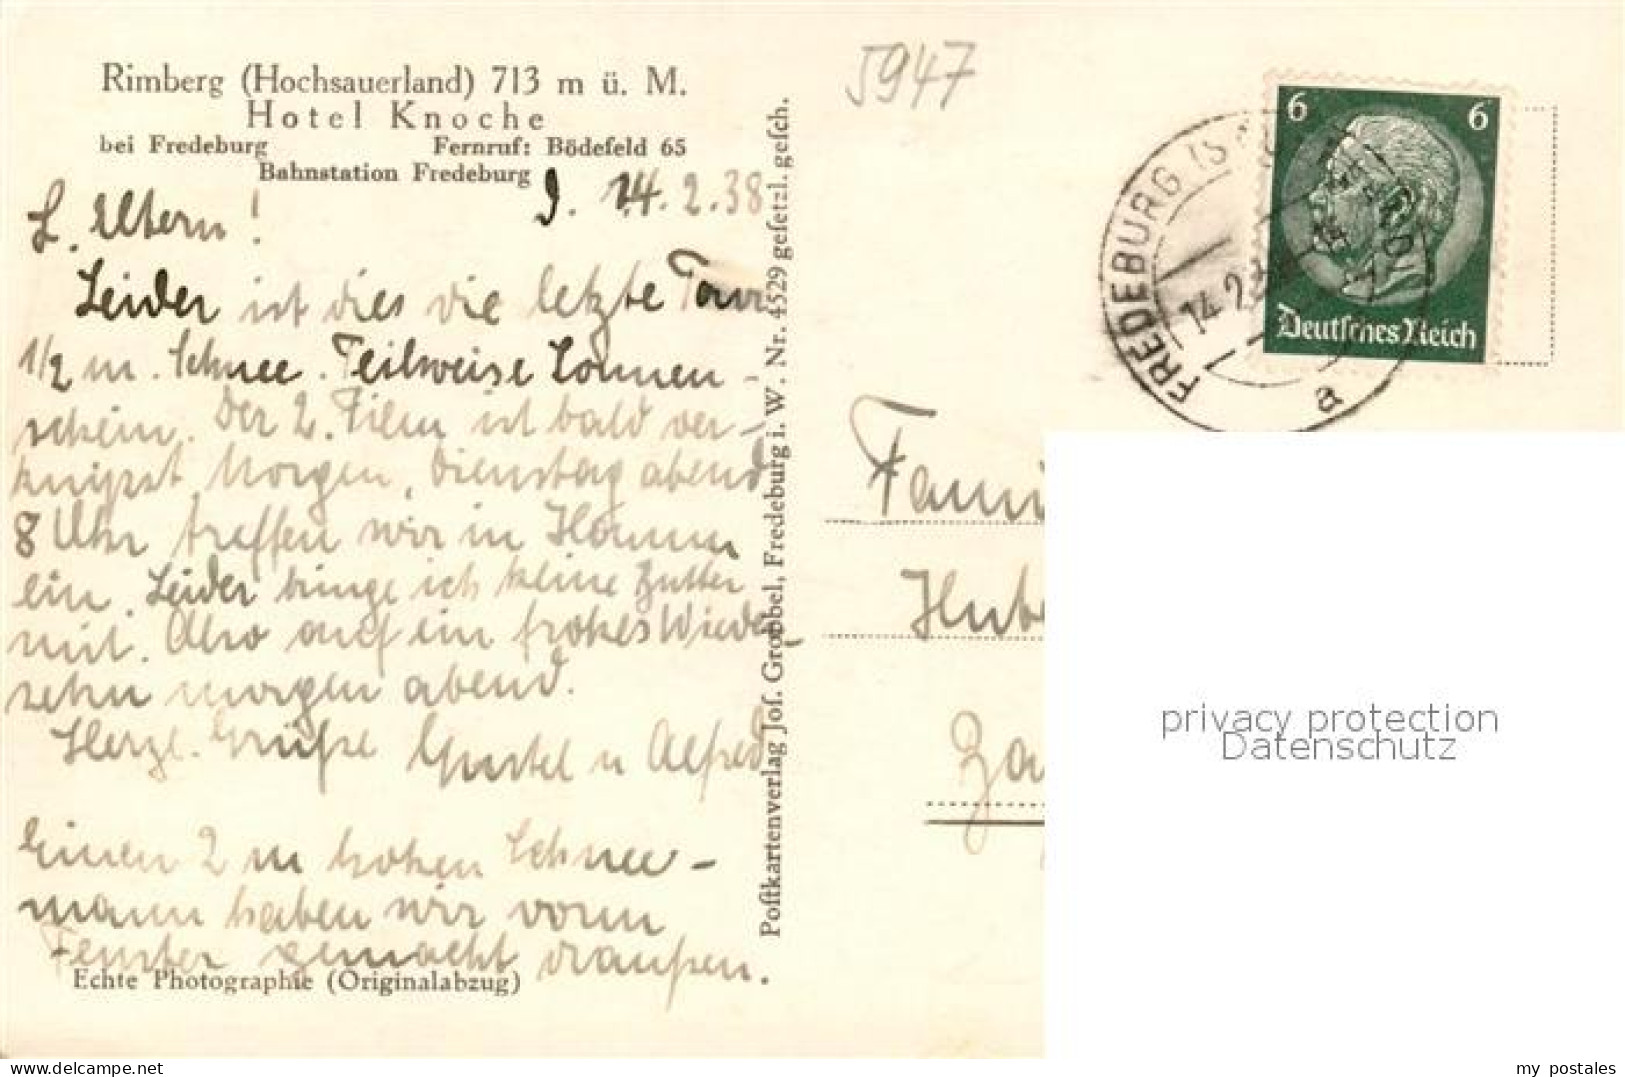 Rimberg (Hochsauerland) 713 m ü. M.
Hotel Knoche
bei Fredeburg Fernruf: Bödefeld 65
Bahnstation Fredeburg
14.2.38
L. Eltern!
Leider ist dies die letzte Tour
1/2 m. Schnee. Teilweise Sonnen-
schein. Der 2. Film ist bald ver-
knipst. Morgen, Dienstag abend
8 Uhr treffen wir in Hamm
ein. Leider bringe ich keine Butter
mit. Also auf ein frohes Wieder-
sehn morgen abend.
Herzl. Grüße Gustel u Alfred
Einen 2 m hohen Schnee-
mann haben wir vorm
Fenster gemacht draußen.
Echte Photographie (Originalabzug)
Postkartenverlag Jos. Grobbel, Fredeburg i. W. Nr. 4529 gesetzl. gesch.
5947
FREDEBURG (S
14.2
a
6 6
Deutsches Reich
Fami
Hube
privacy protection
Datenschutz
my-main.com
my postales